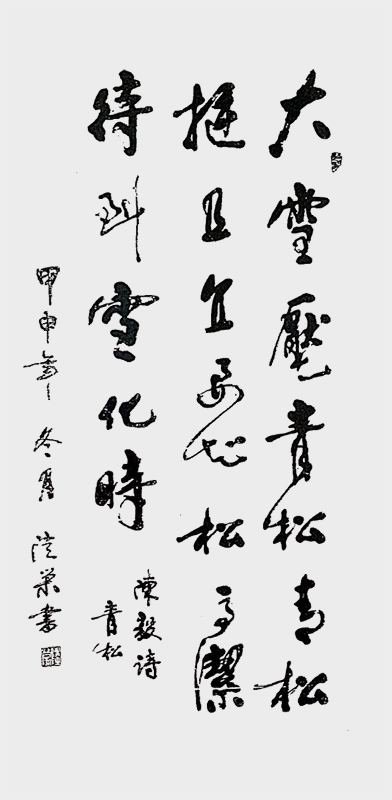 大雪壓青松青松
挺且直要知松高潔
待到雪化時
陳毅詩
青松
甲申年冬月 書